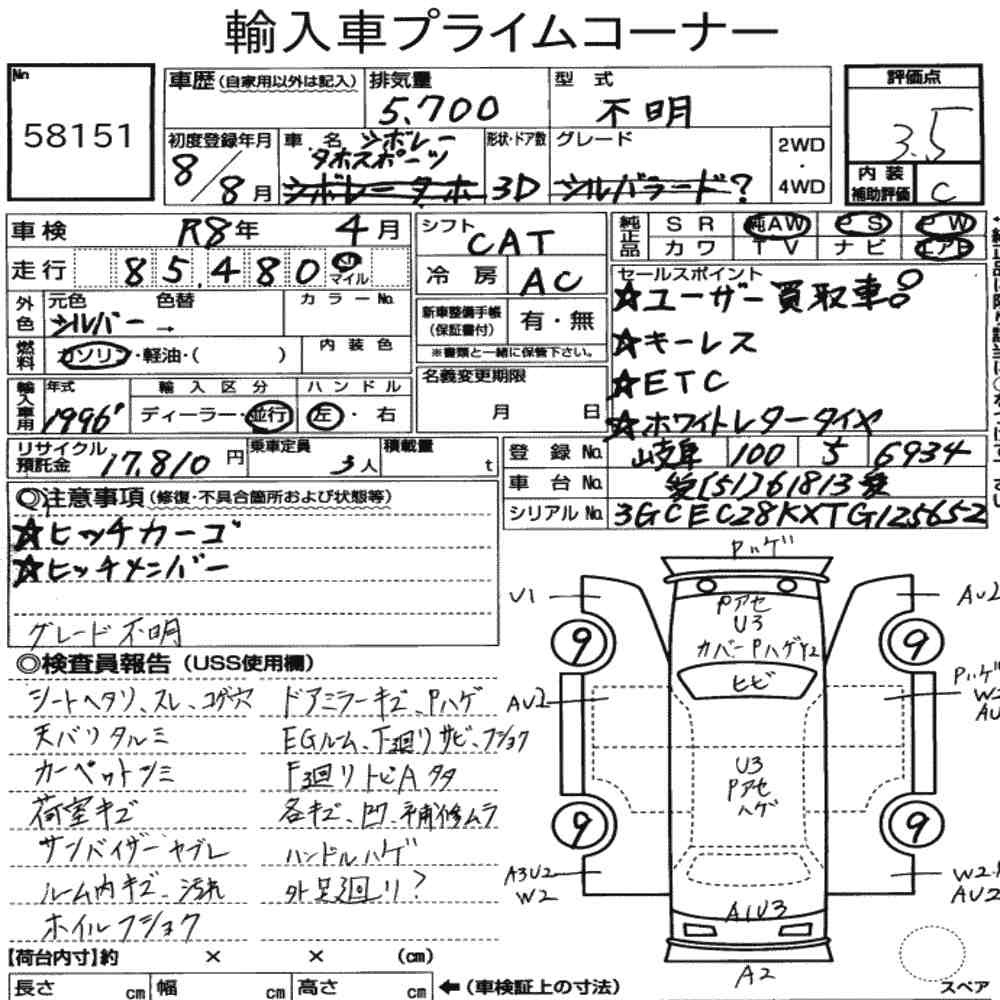 輸入車プライムコーナー
No
58151
車歴(自家用以外は記入)
排気量
5,700
型 式
不明
評価点
3.5
内装補助評価
C
初度登録年月
8/8月
車 名
シボレー
タホスポーツ
シボレータホ
形状・ドア数
3D
グレード
シルバラード?
2WD
・
4WD
車検 R8年 4月
走行 85,480 km マイル
シフト
CAT
冷房 AC
純正品
SR 純AW PS PW
カワ TV ナビ エアB
外色
元色 色替
シルバー →
カラーNo.
燃料 ガソリン・軽油・( )
内装色
新車整備手帳
(保証書付)
有・無
※書類と一緒に保管下さい。
名義変更期限
月 日
セールスポイント
☆ユーザー買取車
☆キーレス
☆ETC
☆ホワイトレタータイヤ
輸入車用
年式
1996
輸入区分
ディーラー・並行
ハンドル
左・右
リサイクル預託金 17,810円
乗車定員
3人
積載量
t
登録No. 岐阜 100 5 6934
車台No. [51]61813
シリアルNo. 3GCEC28KXTG125652
◎注意事項(修復・不具合箇所および状態等)
☆ヒッチカーゴ
☆ヒッチメンバー
グレード不明
◎検査員報告(USS使用欄)
シートヘタリ、スレ、コゲ穴
天バリタルミ
カーペットシミ
荷室キズ
サンバイザーヤブレ
ルーム内キズ、汚れ
ホイルフショク
ドアミラーキズ、Pハゲ
EGルーム、下廻リサビ、フショク
F廻リトビAタタ
各キズ、凹、補修ムラ
ハンドルハゲ
外足廻リ?
Pハゲ
U1
AU2
Pアセ
U3
カバーPハゲY2
9
9
ヒビ
AU2
Pハゲ
U3
Pアセ
ハゲ
9
9
A3U2
W2
A1U3
AU2
A2
【荷台内寸】約 × × (cm)
長さ cm 幅 cm 高さ cm
←(車検証上の寸法)
スペア